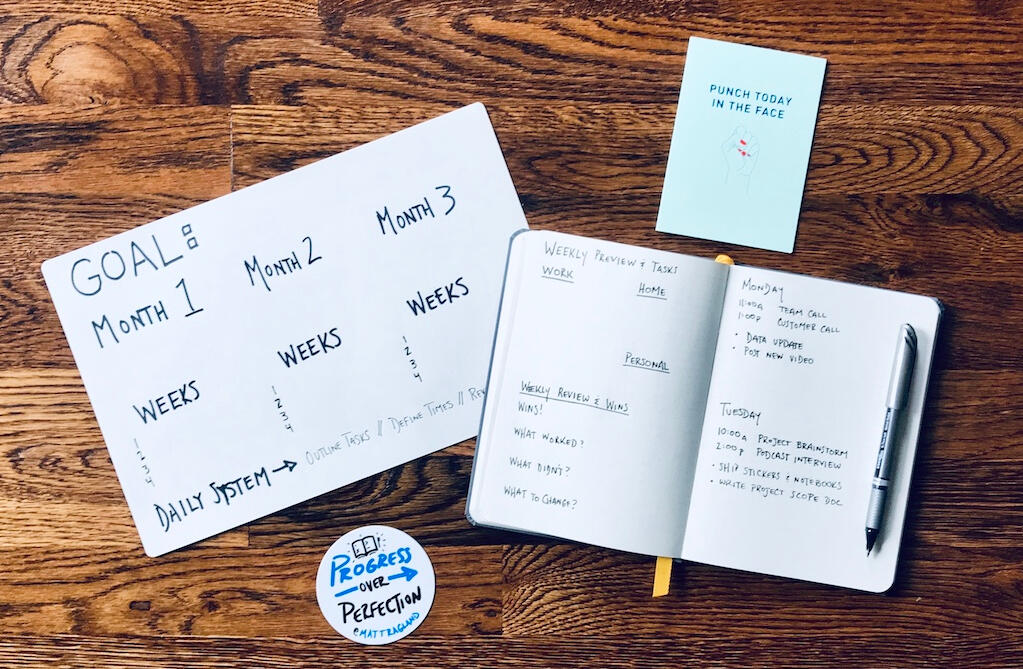 GOAL:
MONTH 1
MONTH 2
MONTH 3
WEEKS
1
2
3
4
WEEKS
1
2
3
4
WEEKS
1
2
3
4
DAILY SYSTEM → OUTLINE TASKS // DEFINE TIMES //
PUNCH TODAY
IN THE FACE
WEEKLY PREVIEW & TASKS
WORK
HOME
PERSONAL
WEEKLY REVIEW & WINS
WINS!
WHAT WORKED?
WHAT DIDN'T?
WHAT TO CHANGE?
MONDAY
11:00A TEAM CALL
1:00P CUSTOMER CALL
• DATA UPDATE
• POST NEW VIDEO
TUESDAY
10:00A PROJECT BRAINSTORM
2:00P PODCAST INTERVIEW
• SHIP STICKERS & NOTEBOOKS
• WRITE PROJECT SCOPE DOC
PROGRESS
OVER
PERFECTION
@MATTRAGLAND